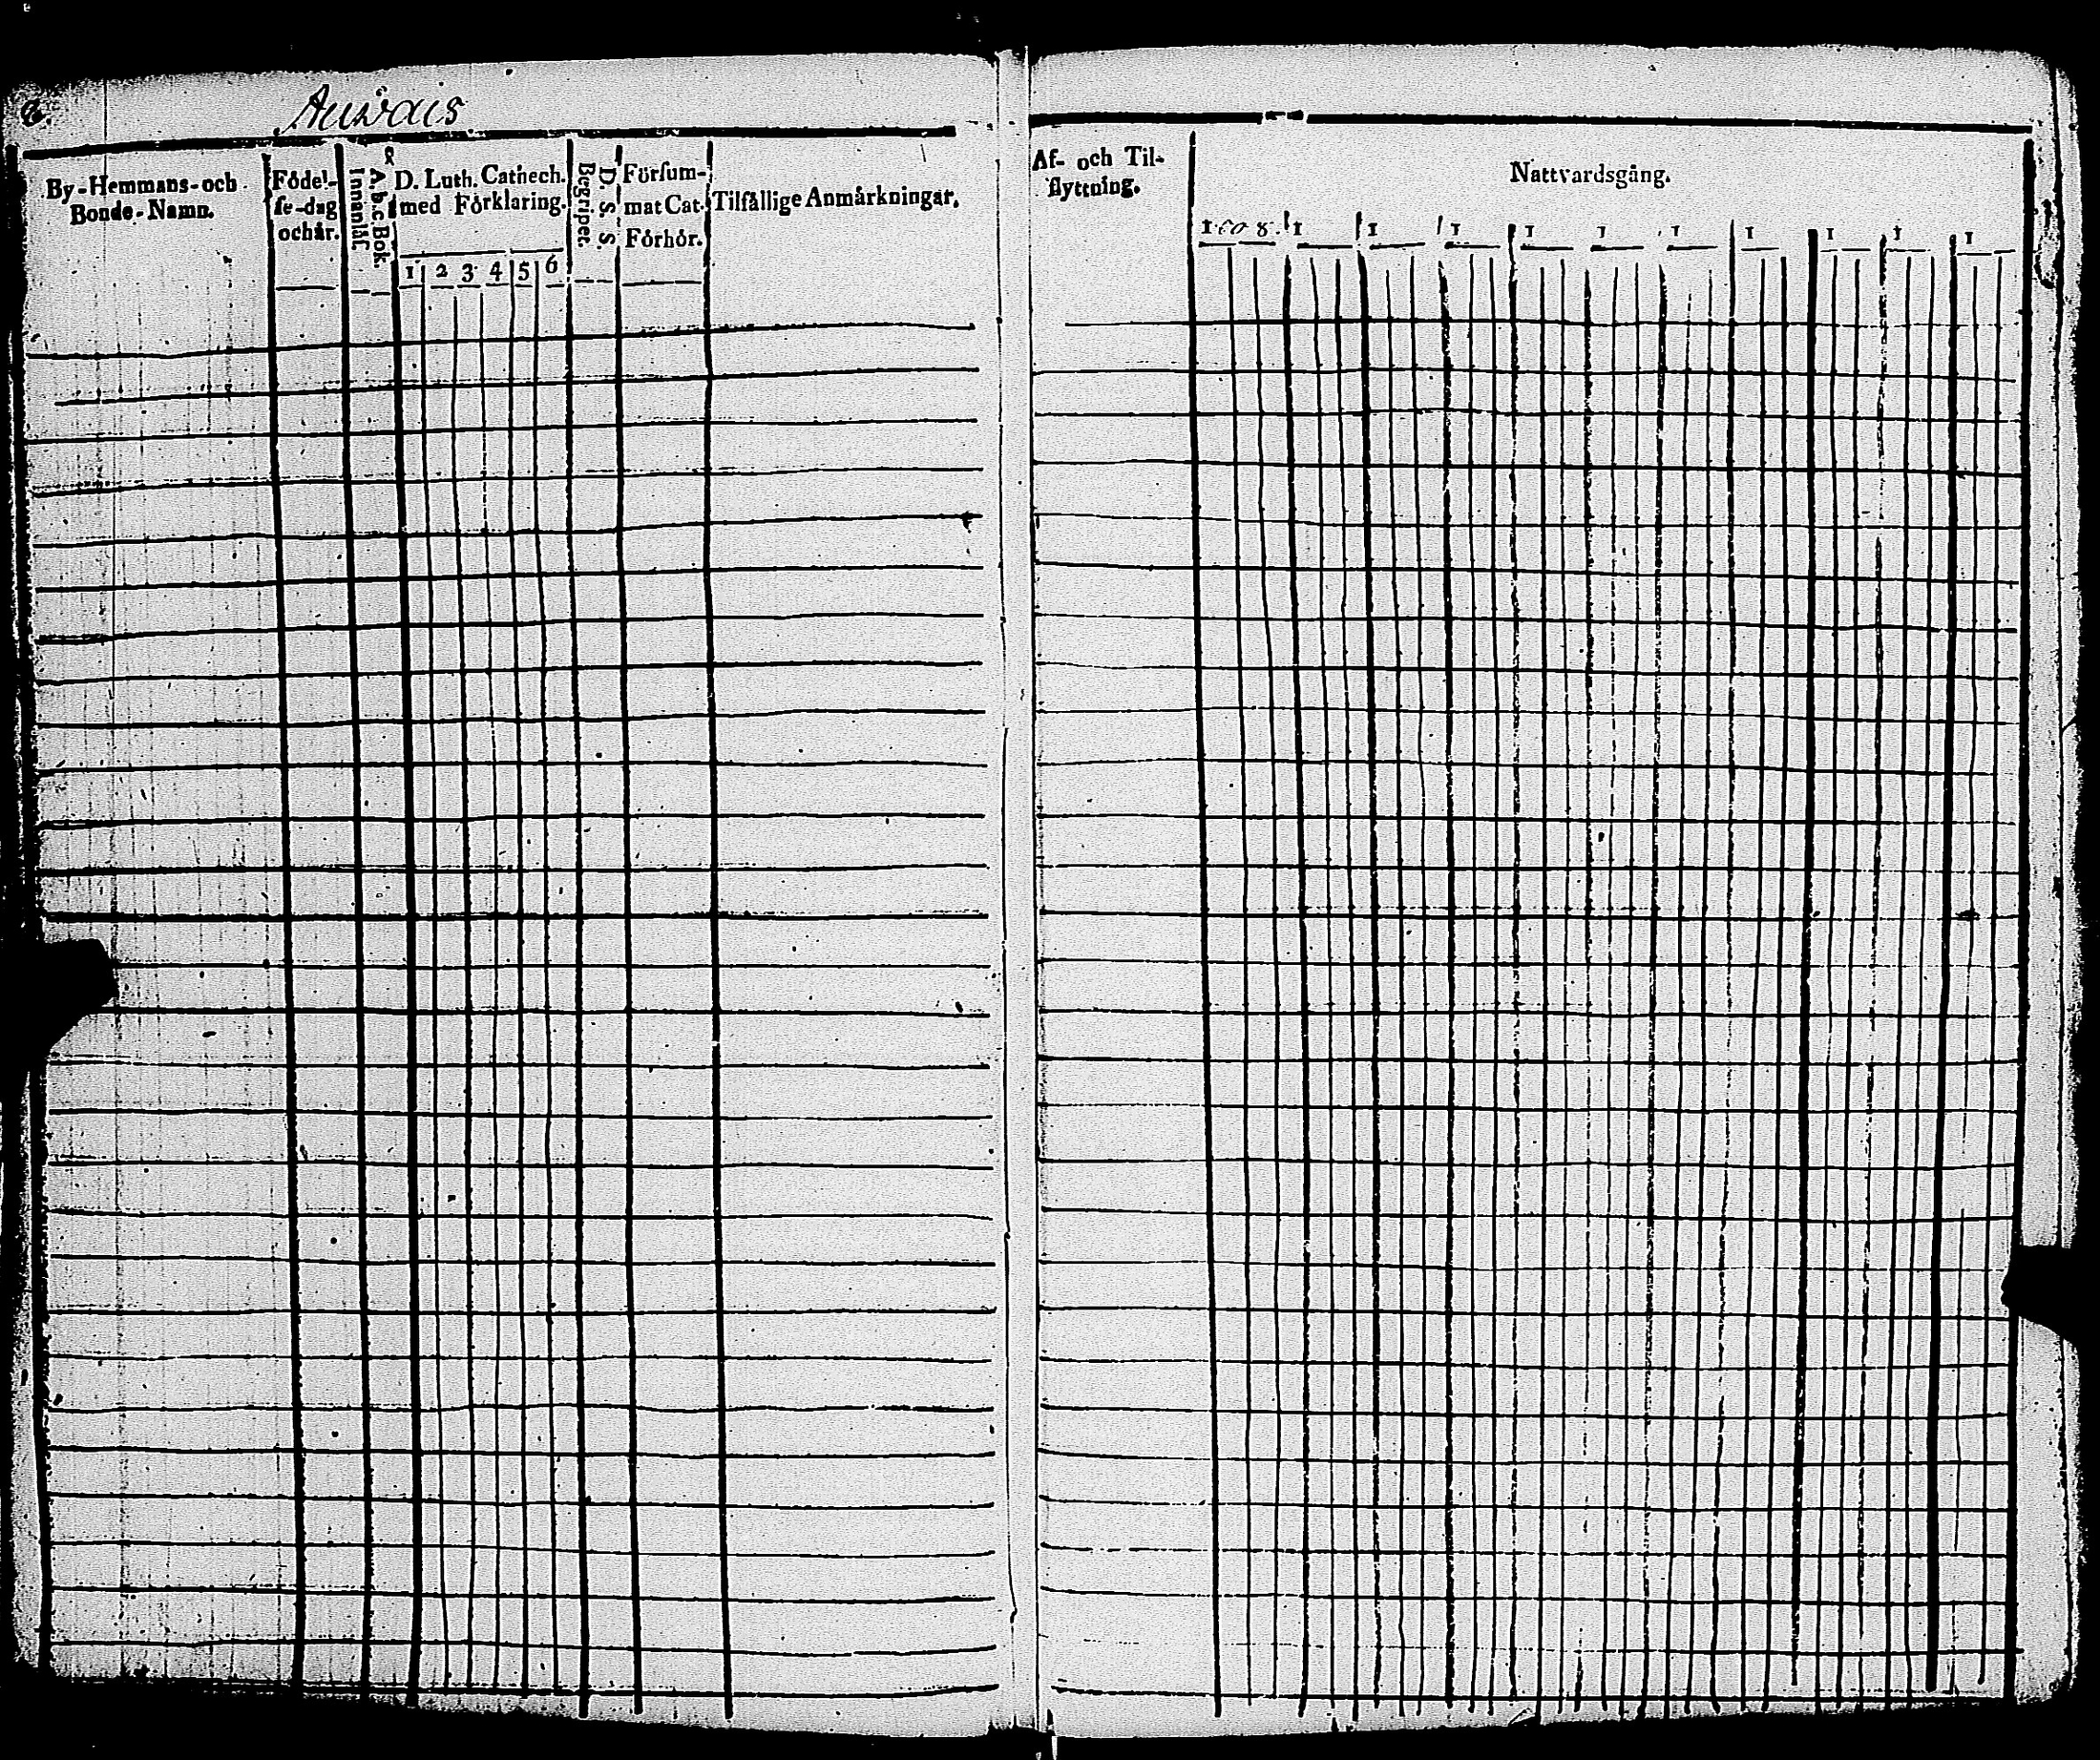 Auvais
By-Hemmans-och
Bonde-Namn.
Födel-
se-dag
och år.
A.b.c.Bok. &
Innanläs.
D. Luth. Cathech.
med Förklaring.
1 2 3 4 5 6
D. S. S.
Begriper.
Försum-
mat Cat.
Förhör.
Tilfällige Anmärkningar.
Af- och Til-
flyttning.
Nattvardsgång.
1808. 1 1 1 1 1 1 1 1 1 1